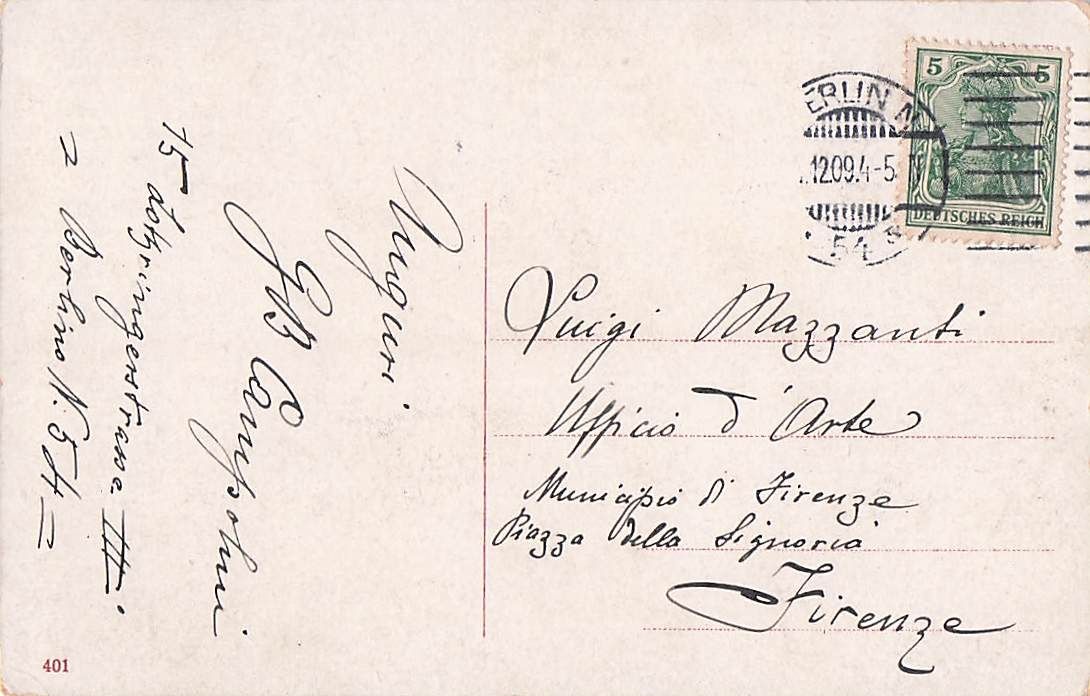 Auguri
GB Campolmi
15 Lotringerstrasse III
= Berlino N. 54 =
5 5
DEUTSCHES REICH
BERLIN N
.12.09.4-5 N
54
Luigi Mazzanti
Ufficio d'Arte
Municipio di Firenze
Piazza della Signoria
Firenze
401